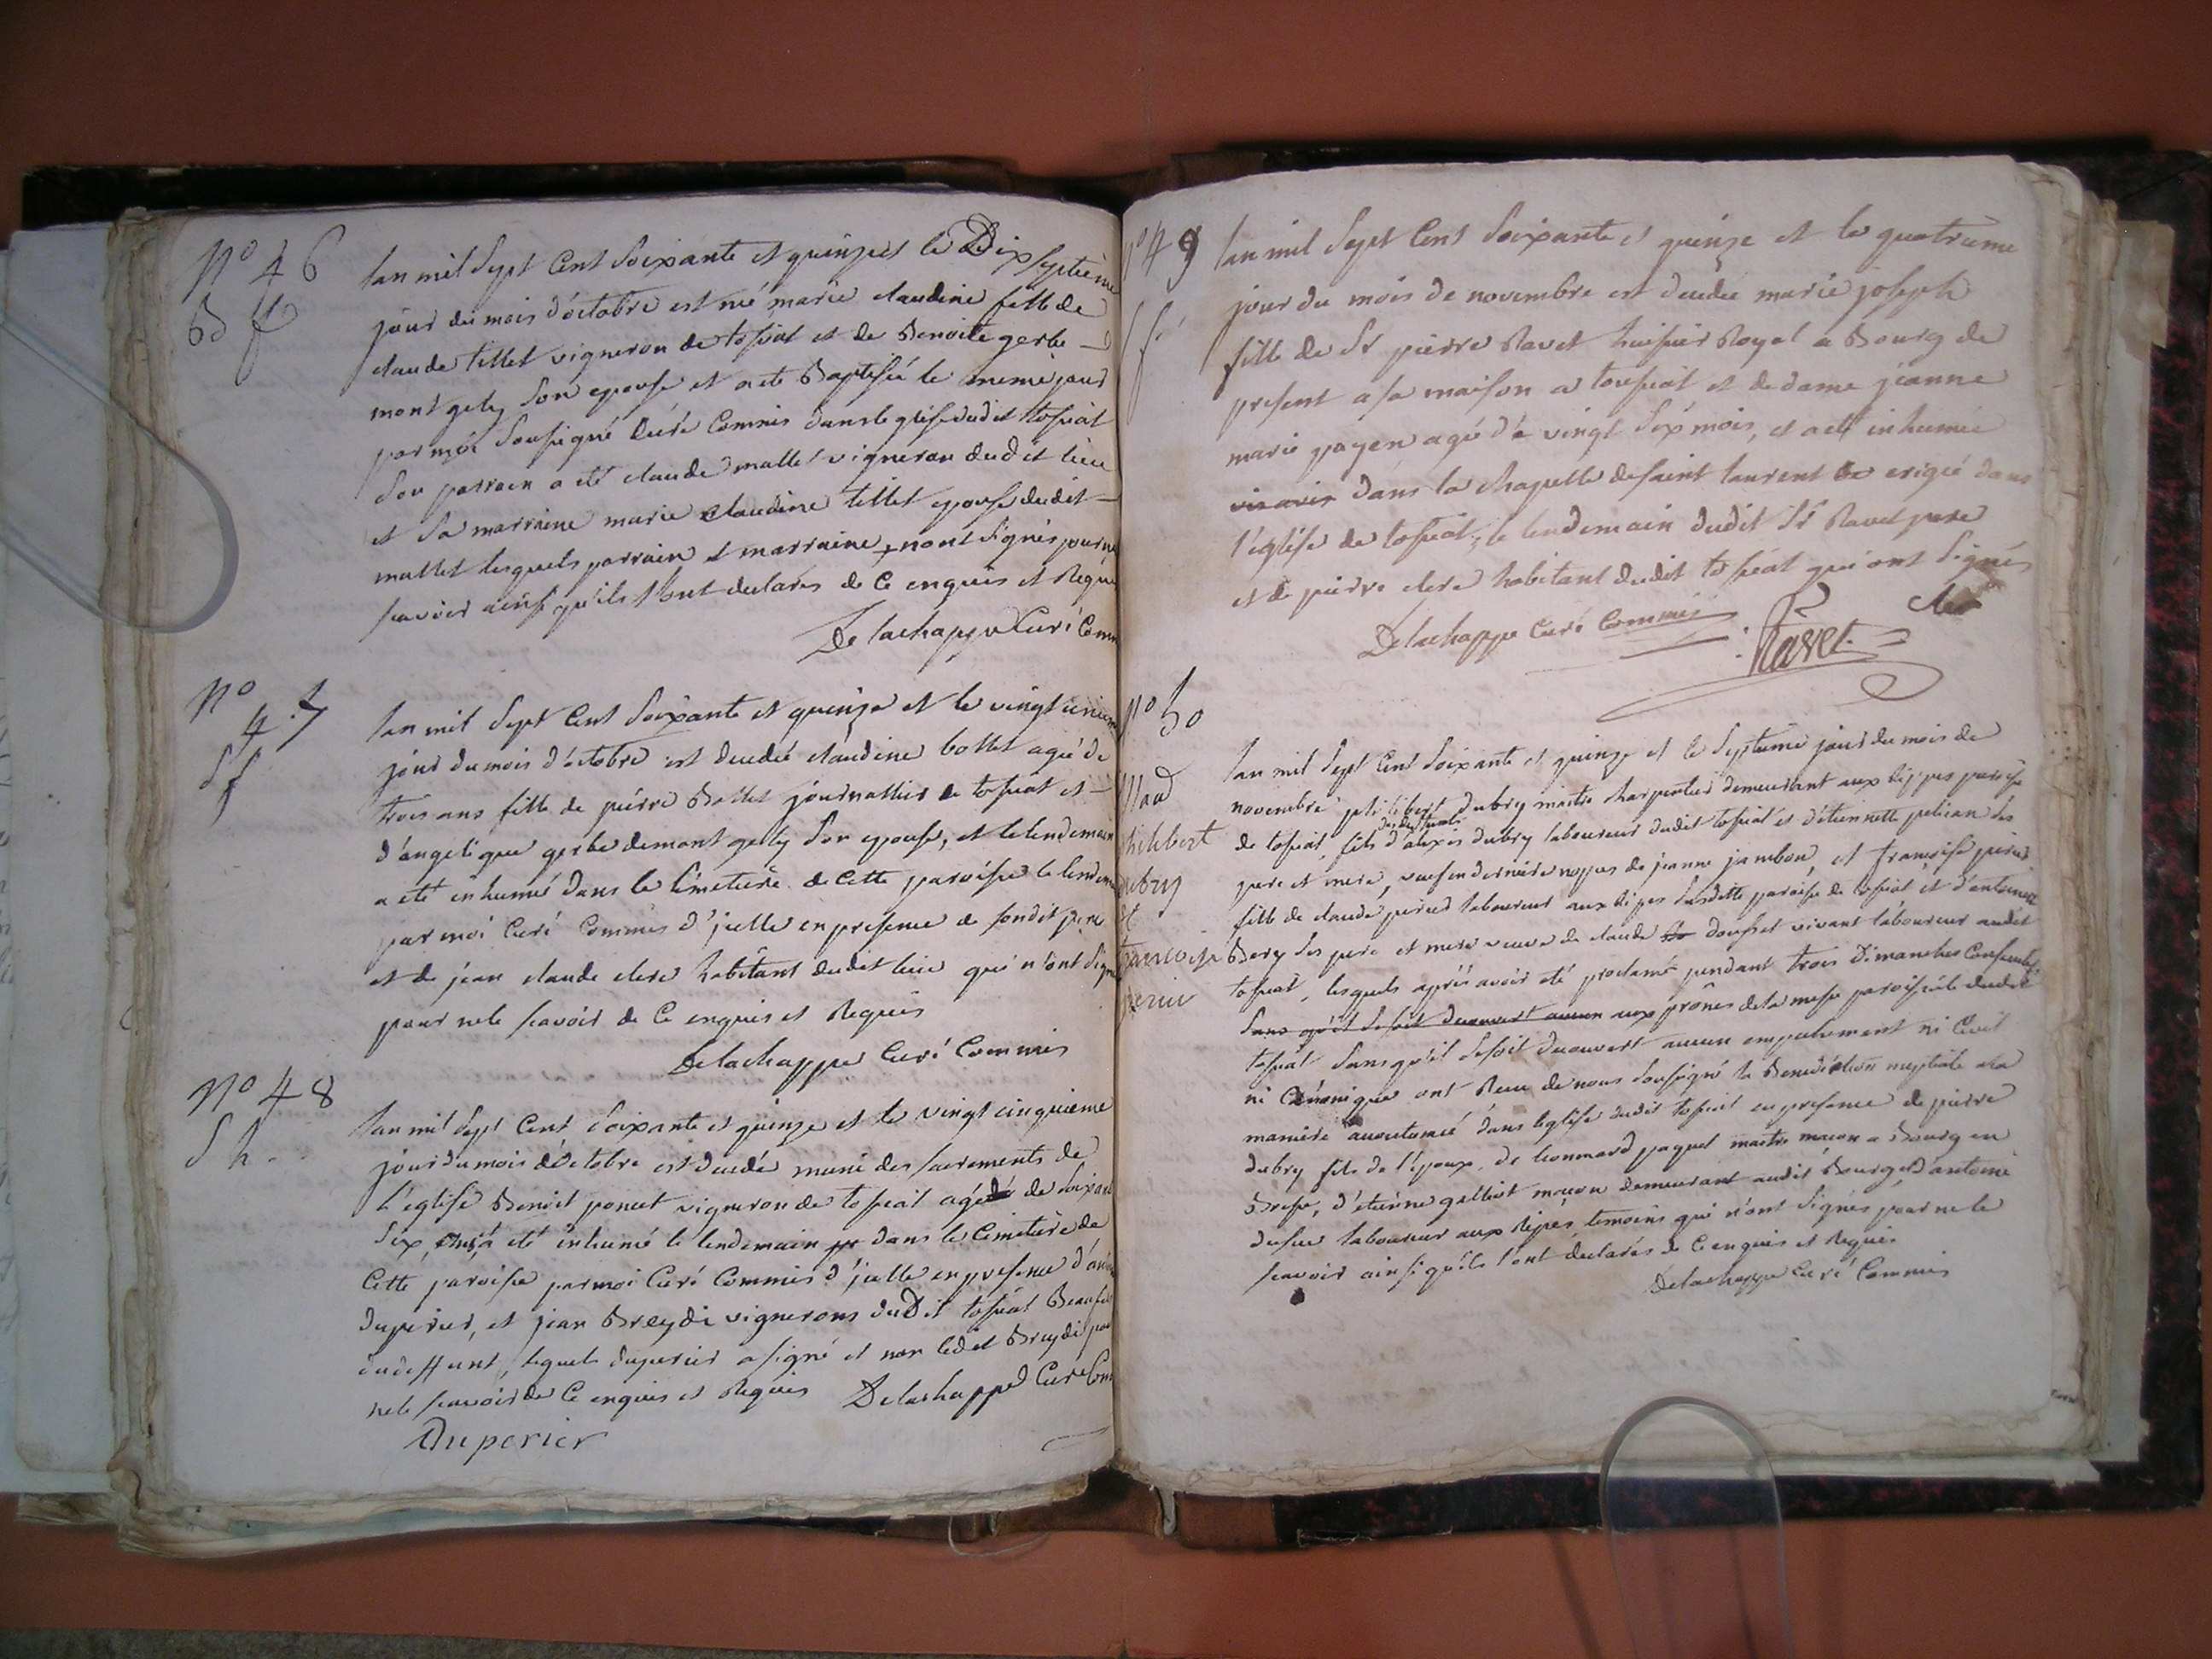 N° 46
Bd f
lan mil sept Cent soixante et quinze et le Dix septieme
jour du mois d'octobre est né marie claudine fille de
claude tillet vigneron de tossiat et de Benoite gerbe
mont gely son epouse et a eté Baptisée le meme jour
par moi soussigné Curé Commis dans leglise dudit tossiat
son parrain a eté claude mallet vigneron dudit lieu
et sa marraine marie claudine tillet epouse dudit
mallet lesquels parrain et marraine nont signés pour ne
scavoir ainsi qu'ils l'ont declarés de Ce enquis et Requis
Delachappe Curé Comm
N°
47
S f
lan mil sept Cent soixante et quinze et le vingt unieme
jour du mois d'octobre est decedée claudine bollet agée de
trois ans fille de pierre Bollet journallier de tossiat et
d'angelique gerbe demont gely son epouse, et le lendemain
a eté inhumé dans le Cimetiere de Cette paroisse le lendem
par moi Curé Commis d'jcelle en presence de sondit pere
et de jean claude clerc habitant dudit lieu qui n'ont signé
pour ne le scavoir de Ce enquis et Requis
Delachappe Curé Commis
N° 48
S h.
lan mil sept Cent soixante et quinze et le vingt cinquieme
jour du mois d'Octobre est decedé muni des sacrements de
L'eglise Benoit poncet vigneron de tossiat agé de soixante
six ans, a eté inhumé le lendemain dans le Cimetiere de
Cette paroisse par moi Curé Commis d'jcelle en presence d'
duperier, et jean Breydi vignerons duDit tossiat Beaufils
dudeffunt, lequels duperier a signé et non ledit Breydi pour
nele scavoir de Ce enquis et Requis Delachappe Curé Com
Duperier
n° 49
S f.
lan mil sept Cent soixante et quinze et le quatrieme
jour du mois de novembre est decedée marie joseph
fille de Sr pierre Ravet huissier Royal a Bourg de
present a sa maison a toussiat et de dame jeanne
marie payen agée de vingt six mois, et a eté inhumée
vis avis dans la chapelle de saint laurent erigée dans
l'église de tossiat, le lendemain dudit Sr Ravet pere
et de pierre clerc habitant dudit tossiat qui ont signés
Delachappe Curé Commis Ravet Clerc
n° 50
hilibert
ubry
et
francoise
perier
lan mil sept Cent soixante et quinze et le septieme jour du mois de
novembre philibert dubry maitre charpentier demeurant aux Rippes paroisse
de tossiat, fils d'alexis dubry laboureur dudit tossiat et d'étiennette pelican ses
pere et mere, veuf en derniere nopces de jeanne jambon, et françoise perier
fille de claude perier laboureur aux Ripes susditte paroisse de tossiat et d'antoinette
Bery ses pere et mere veuve de claude dousset vivant laboureur audit
tossiat, lesquels aprés avoir eté proclamé pendant trois Dimanches Consecutifs
sans qu'il se soit decouvert aucun aux prônes de la messe paroissiale dudit
tossiat sans qu'il se soit decouvert aucun empechement ni Civil
ni Cânonique ont Recu de nous soussigné la Benediction nuptiale a la
maniere accoutumée dans leglise dudit tossiat en presence de pierre
dubry fils de l'époux, de leonnard paquel maitre maçon a Bourg en
Bresse, d'etienne galliot maçon demeurant audit Bourg et d'antoine
dufur laboureur aux Ripes, temoins qui n'ont signés pour ne le
scavoir ainsi qu'ils l'ont declarés de Ce enquis et Requis
Delachappe Curé Commis